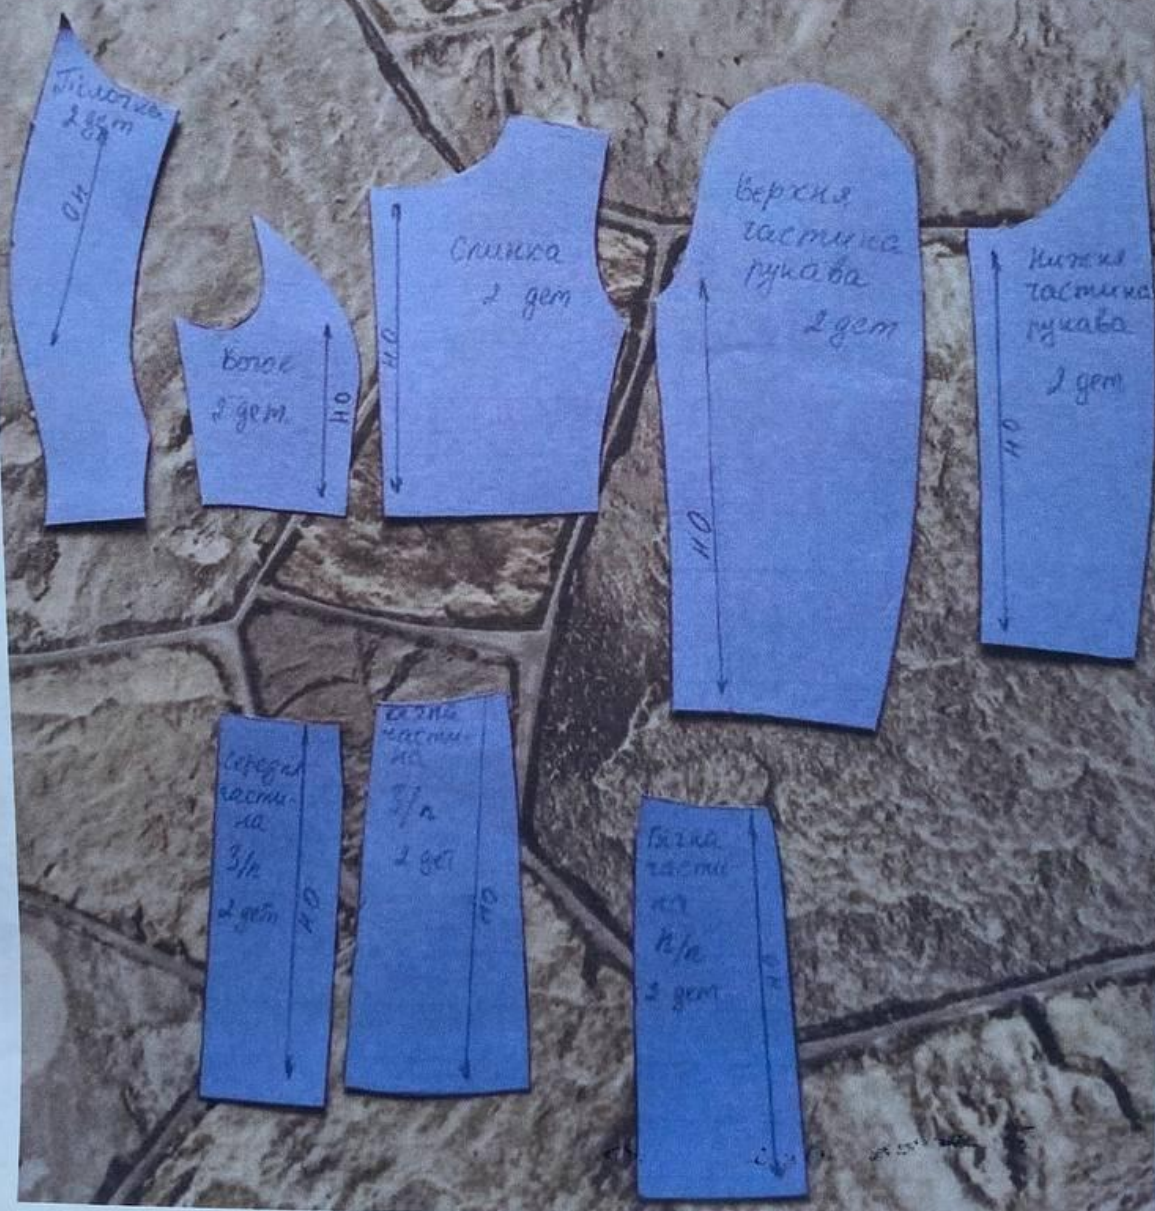 Пілочка
2 дет
НО
Бочок
2 дет.
НО
Спинка
2 дет
НО
Верхня
частина
рукава
2 дет
НО
Нижня
частина
рукава
2 дет
НО
Середня
части-
на
З/п
2 дет
НО
Бічна
части-
на
З/п
2 дет
НО
Бічна
части
на
п/п
2 дет
НО